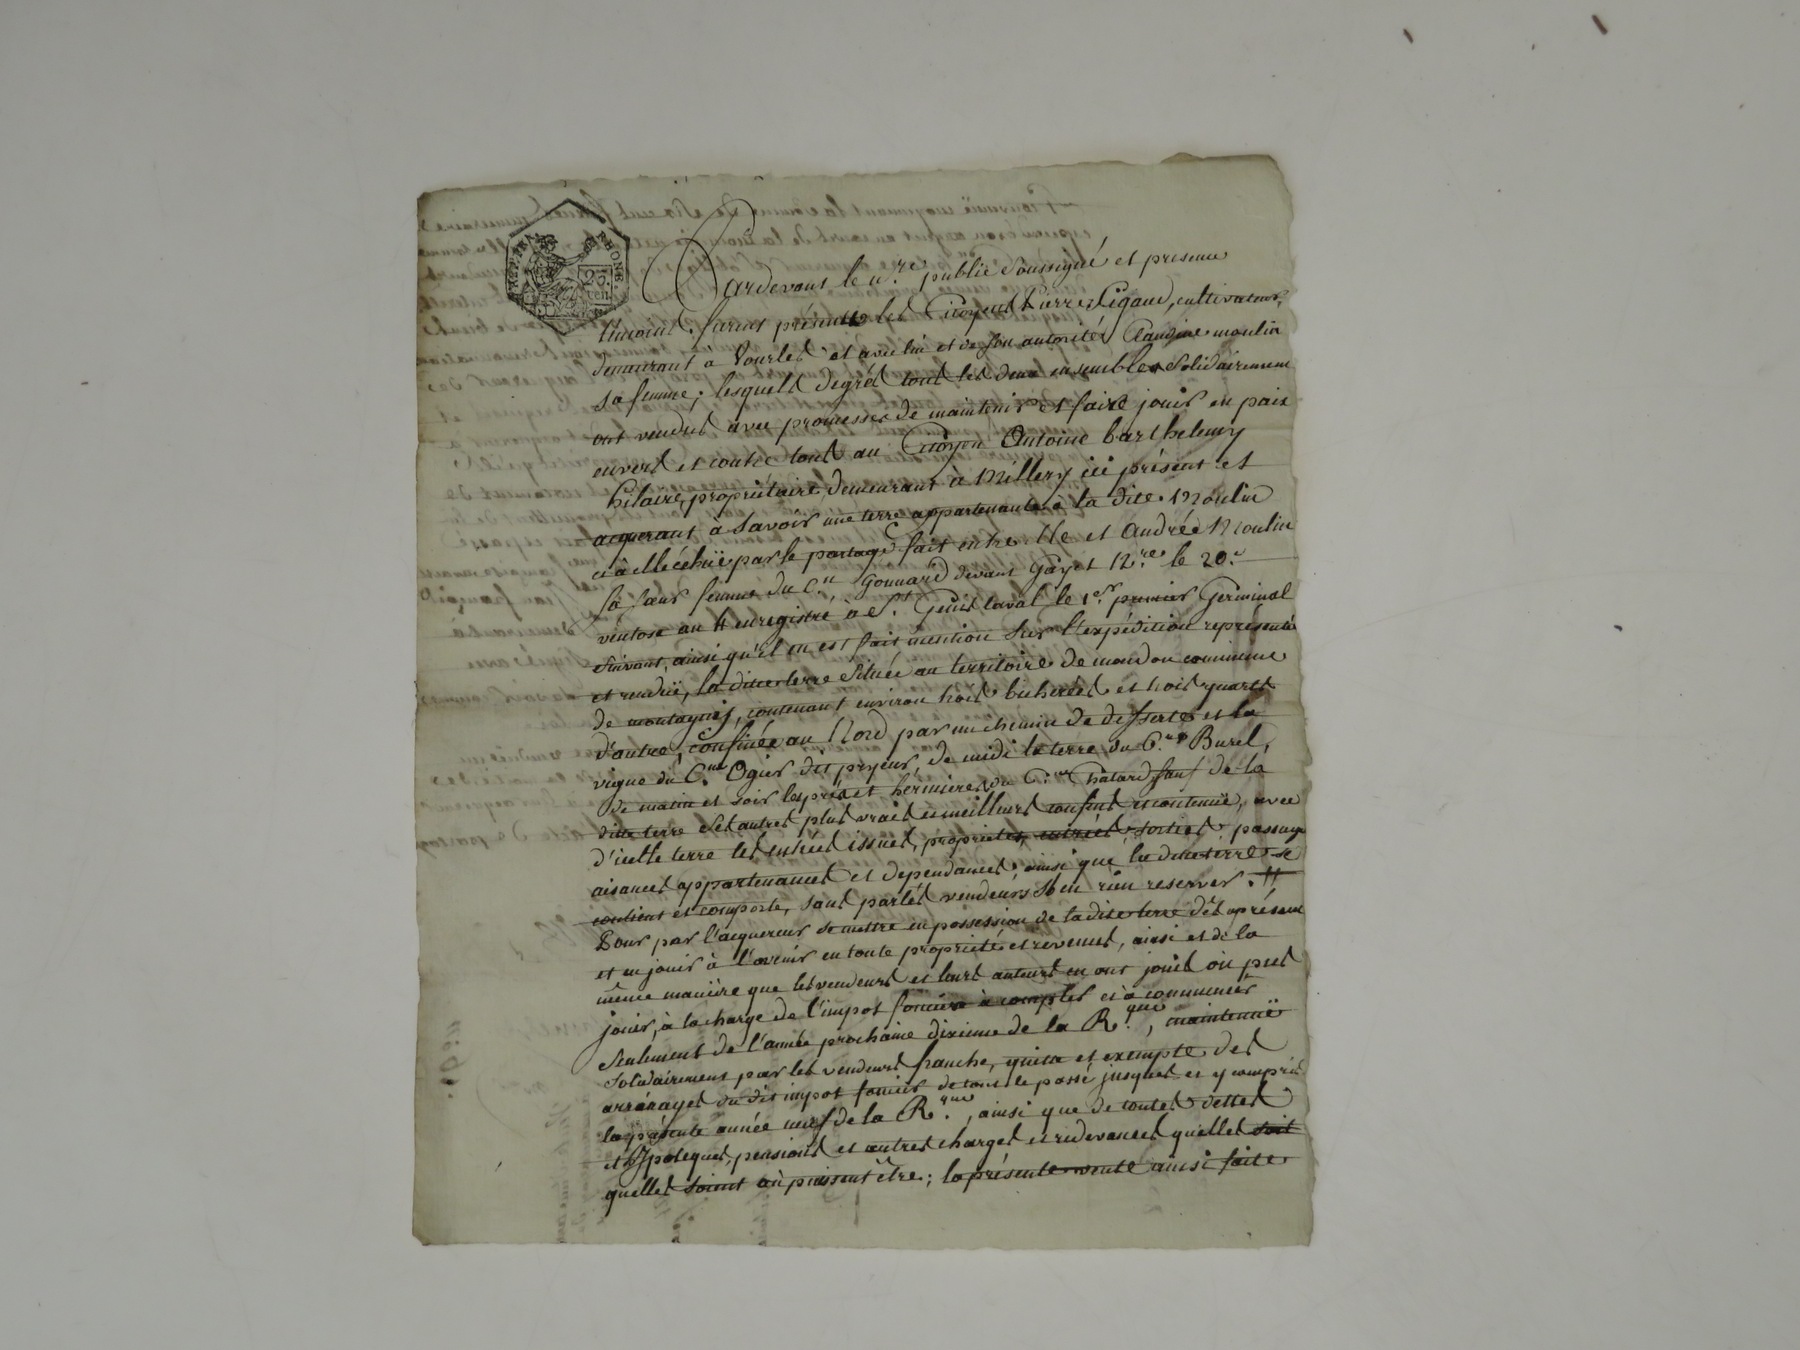 RÉP. FRA.
DU RHONE.
25. cen.
Pardevant le n.re public soussigné et presence
temoins furent présents les Citoyens Pierre Pigaud, cultivateur,
demeurant à Vourles et avec lui et de son autorité Claudine moulin
sa femme; lesquels degrés tous les deux ensembles solidairement
ont vendus avec promesses de maintenir et faire jouir en paix
envers et contre tous au Citoyen Antoine barthelemy
hilaire, propriétaire demeurant à Millery ici présent et
acquerant à savoir une terre appartenante à la dite Moulin
et à elle échüe par le partage fait entre elle et Andrée Moulin
sa sœur femme du C.en Gonnard devant Gayet N.re le 20.e
ventose an 4 enregistré à S.t Genis laval le 1.er premier Germinal
suivant, ainsi qu'il en est fait mention sur l'expédition representée
et rendüe, la ditte terre située au territoire de mondon commune
de montagnÿ, contenant environ trois bicherées et trois quarts
d'autre, confinée au Nord par un chemin de desserte et la
vigne du C.en Ogier dit peyeur, de midi la terre du C.en Burel,
de matin et soir les prés et hermières du C.en Chatard sauf de la
ditte terre ses autres plus vrais et meilleurs confins et contenüe, avec
d'icelle terre les entrées issues, proprietés, entrées sorties, passage
aisances appartenances et dependances; ainsi que la ditte terre se
contient et comporte, sans par les vendeurs s'en rien reserver. //
Pour par l'acquereur se mettre en possession de la dite terre dès aprésent
et en jouir à l'avenir en toute proprieté et revenus, ainsi et de la
même manière que les vendeurs et leurs auteurs en ont jouis où pus
jouir, à la charge de l'impot foncier à compter et à commencer
seulement de l'année prochaine dixieme de la R.que, maintenüe
solidairement par les vendeurs franche, quitte et exempte des
arrérages du dit impot foncier de tout le passé jusques et y compris
la présente année neuf de la R.que, ainsi que de toutes dettes
et hypoteques, pensions et autres charges et redevances quelles soit
quelles soient où puissent être; la présente vente ainsi faite